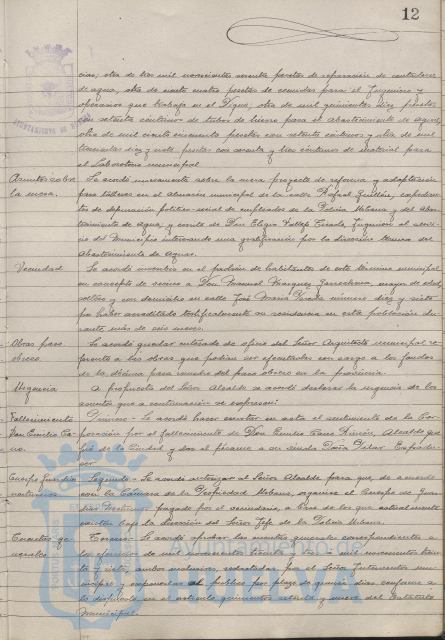 12
cias; otra de tres mil novecientas noventa pesetas de reparación de contadores
de agua, otra de ciento cuatro pesetas de comidas para el Ingeniero y
operarios que trabaja en el Dique, otra de mil quinientas diez pesetas
con setenta céntimos de tubos de hierro para el Abastecimiento de agua,
otra de mil ciento cincuenta pesetas con setenta céntimos y otra de mil
trescientas diez y siete pesetas con céntimos de material para
el Laboratorio municipal.
Asuntos sobre la mesa.
Se acordó nuevamente sobre la mesa proyecto de reforma y adaptación
para talleres en el almacén municipal de la calle Rafael Guillén, expedien-
tes de depuración político-social de empleados de la Policía Urbana y del Abas-
tecimiento de Agua, y escrito de Don Eligio Ingeniero al servi-
cio del Municipio interesando una gratificación por la dirección técnica del
Abastecimiento de Aguas.
Vecindad
Se acordó inscribir en el padrón de habitantes de este término municipal
en concepto de vecino a Don Manuel Márquez mayor de edad,
soltero y con domicilio en calle José María número diez y siete
por haber acreditado testificalmente su residencia en esta población du-
rante más de seis meses.
Obras paro obrero
Se acordó quedar enterado de oficio del Señor Arquitecto municipal re-
ferente a las obras que podían ser ejecutadas con cargo a los fondos
de la décima para remedio del paro obrero en la provincia.
Urgencia
A propuesta del Señor Alcalde se acordó declarar la urgencia de los
asuntos que a continuación se expresan:
Fallecimiento Don Emilio Ca- no.
Primero.- Se acordó hacer constar en acta el sentimiento de la Cor-
poración por el fallecimiento de Don Emilio Cano Rincón, Alcalde que
fué de la Ciudad y dar el pésame a su viuda Doña Pilar
Cuerpo guardias nocturnos
Segundo.- Se acordó autorizar al Señor Alcalde para que, de acuerdo
con la Cámara de la Propiedad Urbana, organice el Cuerpo de Guar-
dias Nocturnos pagado por el vecindario, a base de los que actualmente
existen bajo la dirección del Señor Jefe de la Policía Urbana.
Cuentas ge- nerales
Tercero.- Se acordó aprobar las cuentas generales correspondientes a
los ejercicios de mil novecientos treinta y mil novecientos trein-
ta y siete, ambos inclusives, redactadas por el Señor Interventor muni-
cipal y exponerlas al público por plazo de quince días conforme a
lo dispuesto en el artículo quinientos setenta y nueve del Estatuto
Municipal.
AYUNTAMIENTO DE HUELVA
Ayuntamiento de
HUELVA